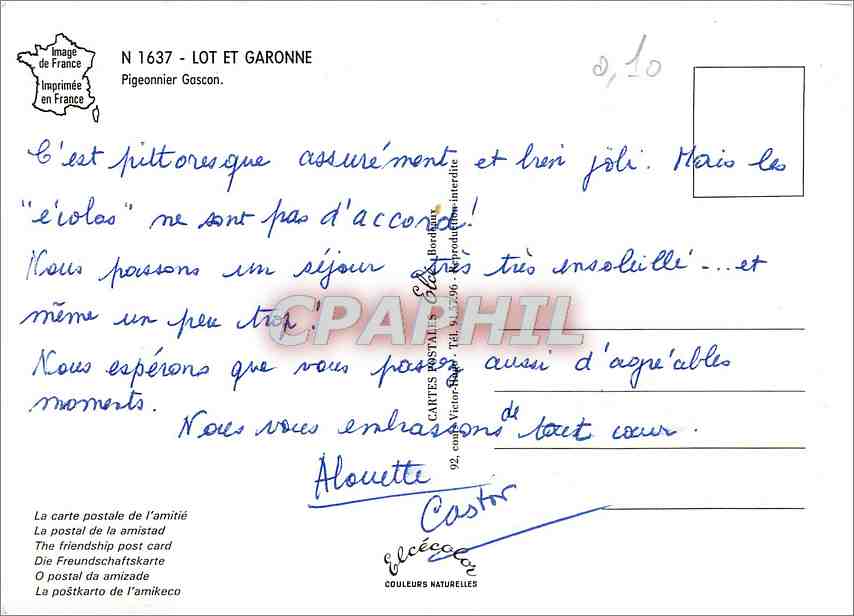 Image
de France
Imprimée
en France
N 1637 - LOT ET GARONNE
Pigeonnier Gascon.
0,10
C'est pittoresque assurément et bien joli. Mais les
"écolos" ne sont pas d'accord!
Nous passons un séjour très très ensoleillé ... et
même un peu trop!
Nous espérons que vous passez aussi d'agréables
moments.
Nous vous embrassons de tout cœur.
Alouette
Castor
CARTES POSTALES Elcé Bordeaux
92, cours Victor-Hugo - Tél. 91.57.96 - Reproduction interdite
CPAPHIL
La carte postale de l'amitié
La postal de la amistad
The friendship post card
Die Freundschaftskarte
O postal da amizade
La poŝtkarto de l'amikeco
Elcécolor
COULEURS NATURELLES